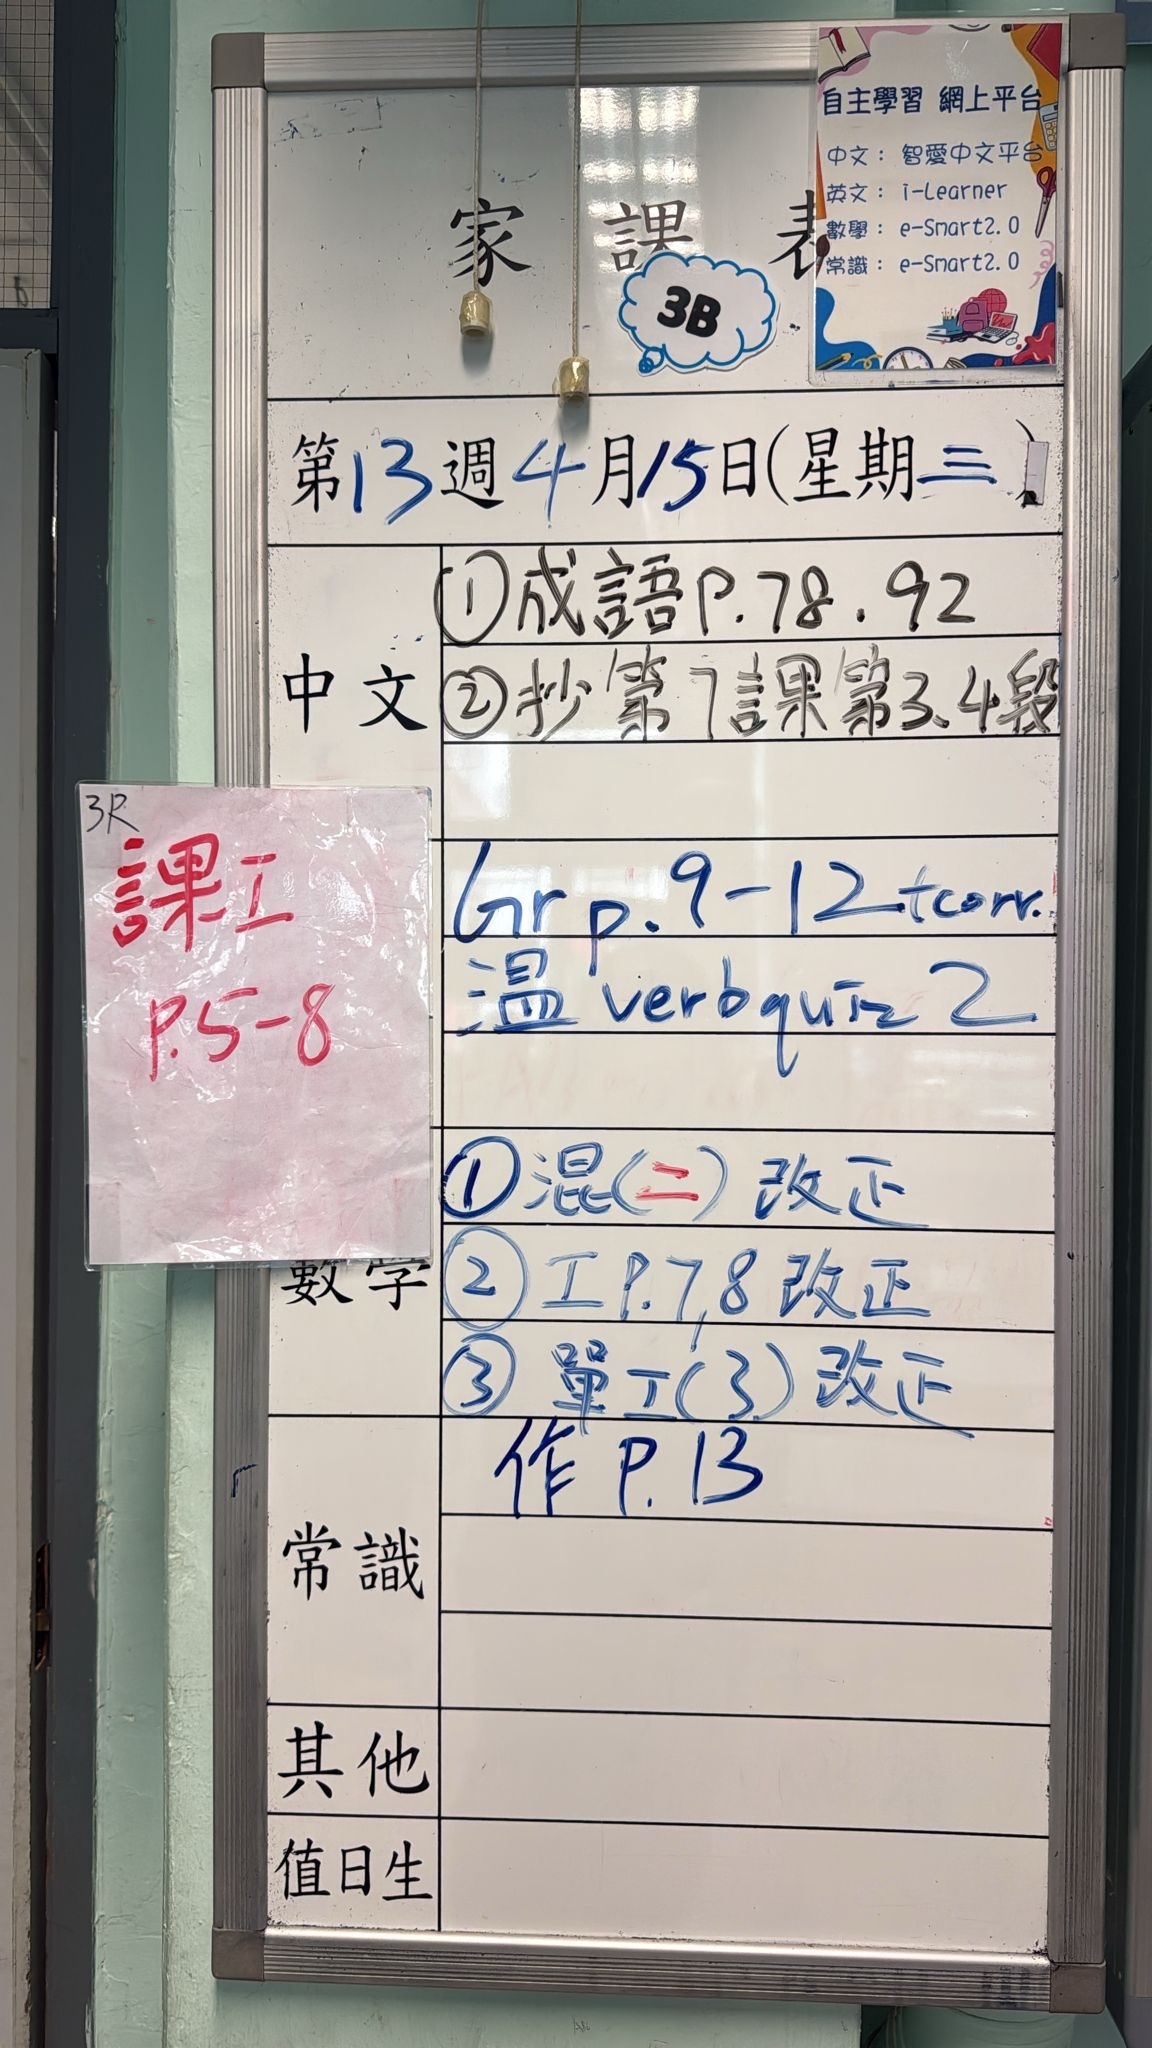 自主學習 網上平台
中文： 智愛中文平台
英文： i-Learner
數學： e-Smart2.0
常識： e-Smart2.0
家 課 表
3B
第13週4月15日(星期三)
中文
①成語P.78.92
②抄第7課第3、4段
3R
課工
P.5-8
Gr p.9-12+corr.
溫 verb quiz 2
數學
①混(二)改正
②工P.7,8改正
③單工(3)改正
常識
作P.13
其他
值日生